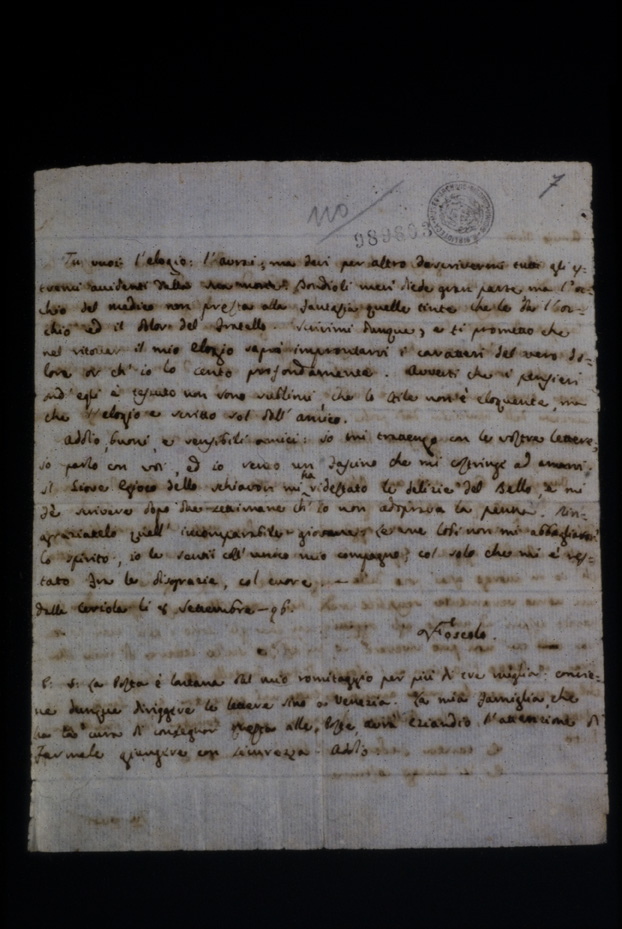 7
no
989893
Tu vuoi l'elogio: l'avrai; ma devi per altro descrivermi tutti gli es-
tremi accidenti della sua morte. Bondioli me ne diede gran parte ma l'oc-
chio del medico non presta alla fantasia quelle tinte che le dà l'oc-
chio ed il dolore del fratello. Scrivimi dunque, e ti prometto che
nel ritoccar il mio Elogio saprò improntarvi i caratteri del vero do-
lore or ch'io lo sento profondamente. Avverti che i pensieri
ond'egli è tessuto non sono sublimi che lo stile non è eloquente, ma
che l'elogio è scritto sol dall'amico.
Addio, buoni, e sensibili amici: io mi trattengo con le vostre lettere,
io parlo con voi, ed io sento un fascino che mi costringe ad amarvi.
Il Giove Egioco dello schiavon mi ha ridestato le delizie del Bello, e mi
fè scrivere dopo due settimane ch'io non adoprava la penna. Rin-
graziatelo quell'incomparabile giovane, le sue lodi non mi abbagliaron
lo spirito, io le sentii coll'unico mio compagno, col solo che mi è res-
tato fra le disgrazie, col cuore. —
Dalle Ceriole li 8 settembre — 96.
Foscolo.
P. S. La Posta è lontana dal mio romitaggio per più di tre miglia: convie-
ne dunque diriggere le lettere sino a Venezia. La mia famiglia che
la cura di consegnar alla Posta, avrà eziandio l'attenzione di
farmele giungere con sicurezza. Addio